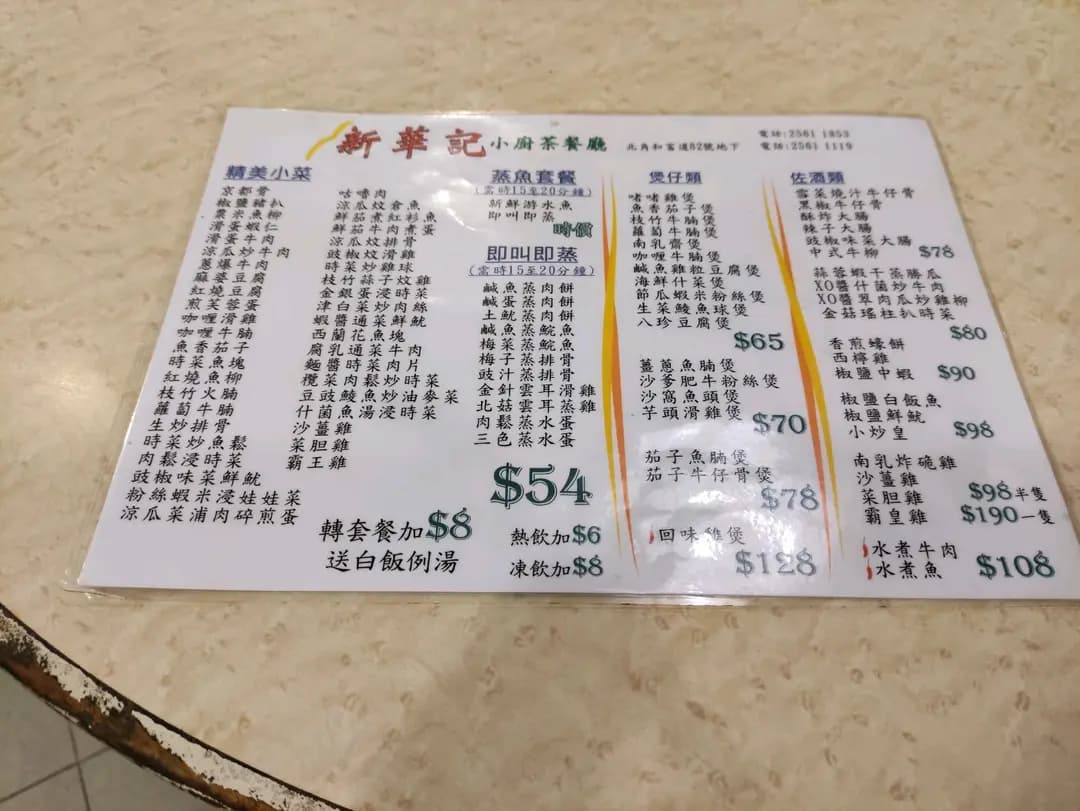 新華記小廚茶餐廳 北角和富道82號地下
電話:2561 1853
電話:2561 1119
精美小菜
京都骨
椒鹽豬扒
粟米魚柳
滑蛋蝦仁
滑蛋牛肉
涼瓜炒牛肉
蔥爆牛肉
麻蓉豆腐
紅燒豆腐
煎芙蓉蛋
咖喱滑雞
咖喱牛腩
魚香茄子
時菜魚塊
紅燒魚柳
枝竹火腩
蘿蔔牛腩
生炒排骨
時菜炒魚鬆
肉鬆浸時菜
豉椒味菜鮮魷
粉絲蝦米浸娃娃菜
涼瓜菜浦肉碎煎蛋
咕嚕肉
涼瓜炆倉魚
鮮茄煮紅衫魚
鮮茄牛肉煮蛋
涼瓜炆排骨
豉椒炆滑雞
時菜炒雞球
枝竹蒜子炆雞
金銀蛋浸時菜
津白菜炒肉絲
蝦醬通菜鮮魷
西蘭花魚塊
腐乳通菜牛肉
麵醬時菜肉片
欖菜肉鬆炒時菜
豆豉鯪魚炒油麥菜
什菌魚湯浸時菜
沙薑雞
菜胆雞
霸王雞
轉套餐加$8
送白飯例湯
蒸魚套餐
(需時15至20分鐘)
新鮮游水魚
即叫即蒸
時價
即叫即蒸
(需時15至20分鐘)
鹹魚蒸肉餅
鹹蛋蒸肉餅
土魷蒸肉餅
鹹魚蒸鯇魚
梅菜蒸鯇魚
梅子蒸排骨
豉汁蒸排骨
金針雲耳滑雞
北菇雲耳蒸雞
肉鬆蒸水蛋
三色蒸水蛋
$54
熱飲加$6
凍飲加$8
煲仔類
啫啫雞煲
魚香茄子煲
枝竹牛腩煲
蘿蔔牛腩煲
南乳齋煲
咖喱牛腩煲
鹹魚雞粒豆腐煲
海鮮什菜煲
節瓜蝦米粉絲煲
生菜鯪魚球煲
八珍豆腐煲
$65
薑蔥魚腩煲
沙爹肥牛粉絲煲
沙窩魚頭煲
芋頭滑雞煲
$70
茄子魚腩煲
茄子牛仔骨煲
$78
回味雞煲
$128
佐酒類
雪菜燒汁牛仔骨
黑椒牛仔骨
酥炸大腸
辣子大腸
豉椒味菜大腸
中式牛柳 $78
蒜蓉蝦干蒸勝瓜
XO醬什菌炒牛肉
XO醬翠肉瓜炒雞柳
金菇瑤柱扒時菜
$80
香煎蠔餅
西檸雞
椒鹽中蝦 $90
椒鹽白飯魚
椒鹽鮮魷
小炒皇 $98
南乳炸硊雞
沙薑雞
菜胆雞 $98半隻
霸皇雞 $190一隻
水煮牛肉
水煮魚 $108